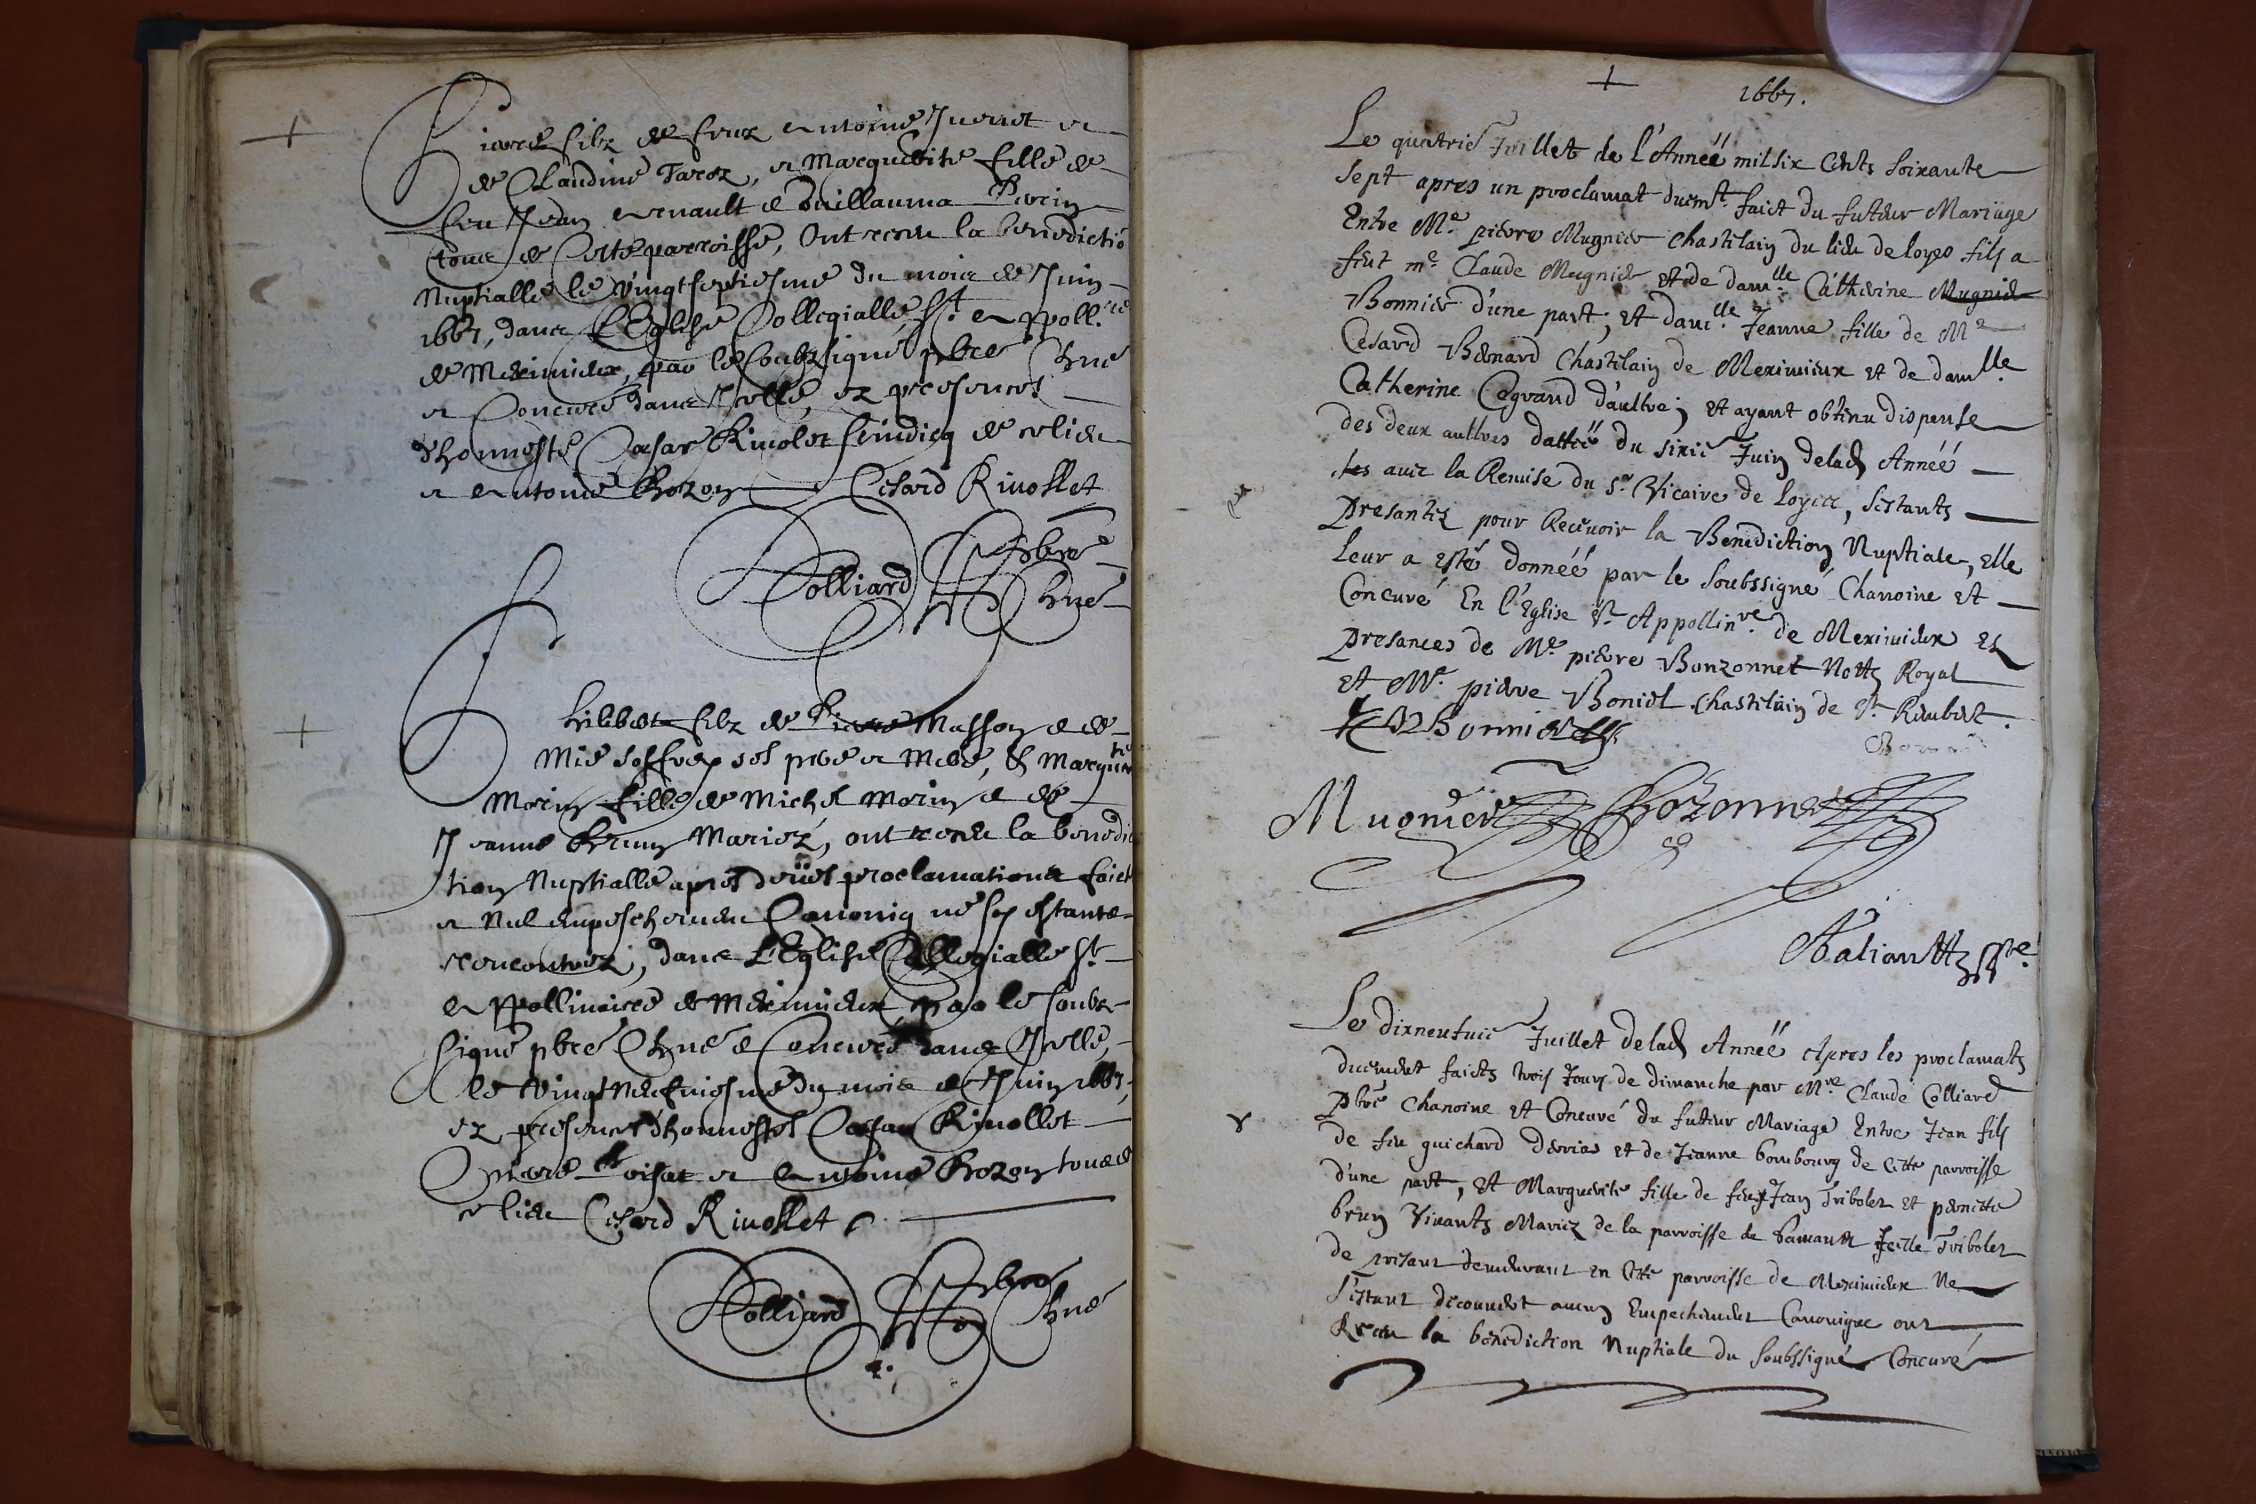 Pierre filz de feux Antoine Juenet et
de Claudine Tarez, et Marguerite fille de
feu Jean Arnault et Guillauma Perrin
touts de Cette parroisse, Ont receu la benedictiõ
Nuptialle le vingtseptiesme du mois de Juin
1667, dans l'Eglise Collegialle St. Appoll.re
de Meximieux, par le soubsigné pbre Chne
et Concuré dans Icelle, ez presences
d'honneste Cesar Riuolet scindicq de ce lieu
et Antoine Bozon Cesard Riuollet
Colliard pbre
Chne
Philibert filz de Pierre Masson et de
Mie ses pere et Mere, & Margte
Morin fille de Michel Morin et de
Jeanne Brun Mariez, ont receu la benedic
tion Nuptialle apres deües proclamations faict
et Nul empeschement Canonique ne s'y estants
rencontrez, dans L'Eglise Collegialle St.
Appollinaire de Meximieux par le soubz
signé pbre Chne et Concuré dans Icelle,
le vingt Neufuiesme du mois de Juin 1667,
ez presences d'honnestes Cesar Riuollet
Pierre et Antoine Bozon touts de
ce lieu Cesard Riuollet
Colliard pbre
Chne
1667.
Le quatrie Juillet de l'Anneé mil six Cents soixante
sept apres un proclamat duemt. faict du futeur Mariage
Entre Me. pierre Mugnier chastelain du lieu de loyes fils a
feut me. Claude Mugnier et de damlle. Catherine Mugnier
Bonnier d'une part; et damlle. Jeanne fille de Me
Cesard Benard Chastelain de Meximieux et de damlle.
Catherine Cegrand d'aultre; et ayant obtenu dispense
des deux aultres dattée du sixie Juin delad Anneé
les auec la Remise du sr. Vicaire de loyes, s'estants
presantez pour Receuoir la Benediction Nuptiale, elle
leur a esté donneé par le soubssigné Chanoine et
Concuré En l'Eglise St. Appollinre. de Meximieux Es
presances de Me. pierre Bonzonnet Nottre Royal
et Me. pierre Boniel Chastelain de St. Rambert.
Bonnier
Mugnier Bozonnet
Le dixneufuie Juillet delad Anneé Apres les proclamats
duement faicts trois Jours de dimanche par Mre. Claude Colliard
pbre Chanoine et Concuré du futeur Mariage Entre Jean fils
de feu guichard derrias et de Jeanne bombourg de Cette parroisse
d'une part, et Marguerite fille de feu Jean Tribolet et pernette
brun Viuants Mariez de la parroisse de lad fille Tribolet
de presant demeurant en Cette parroisse de Meximieux Ne
s'estant decouuert aucun Empechement Canonique ont
Receu la benediction Nuptiale du soubssigné Concuré